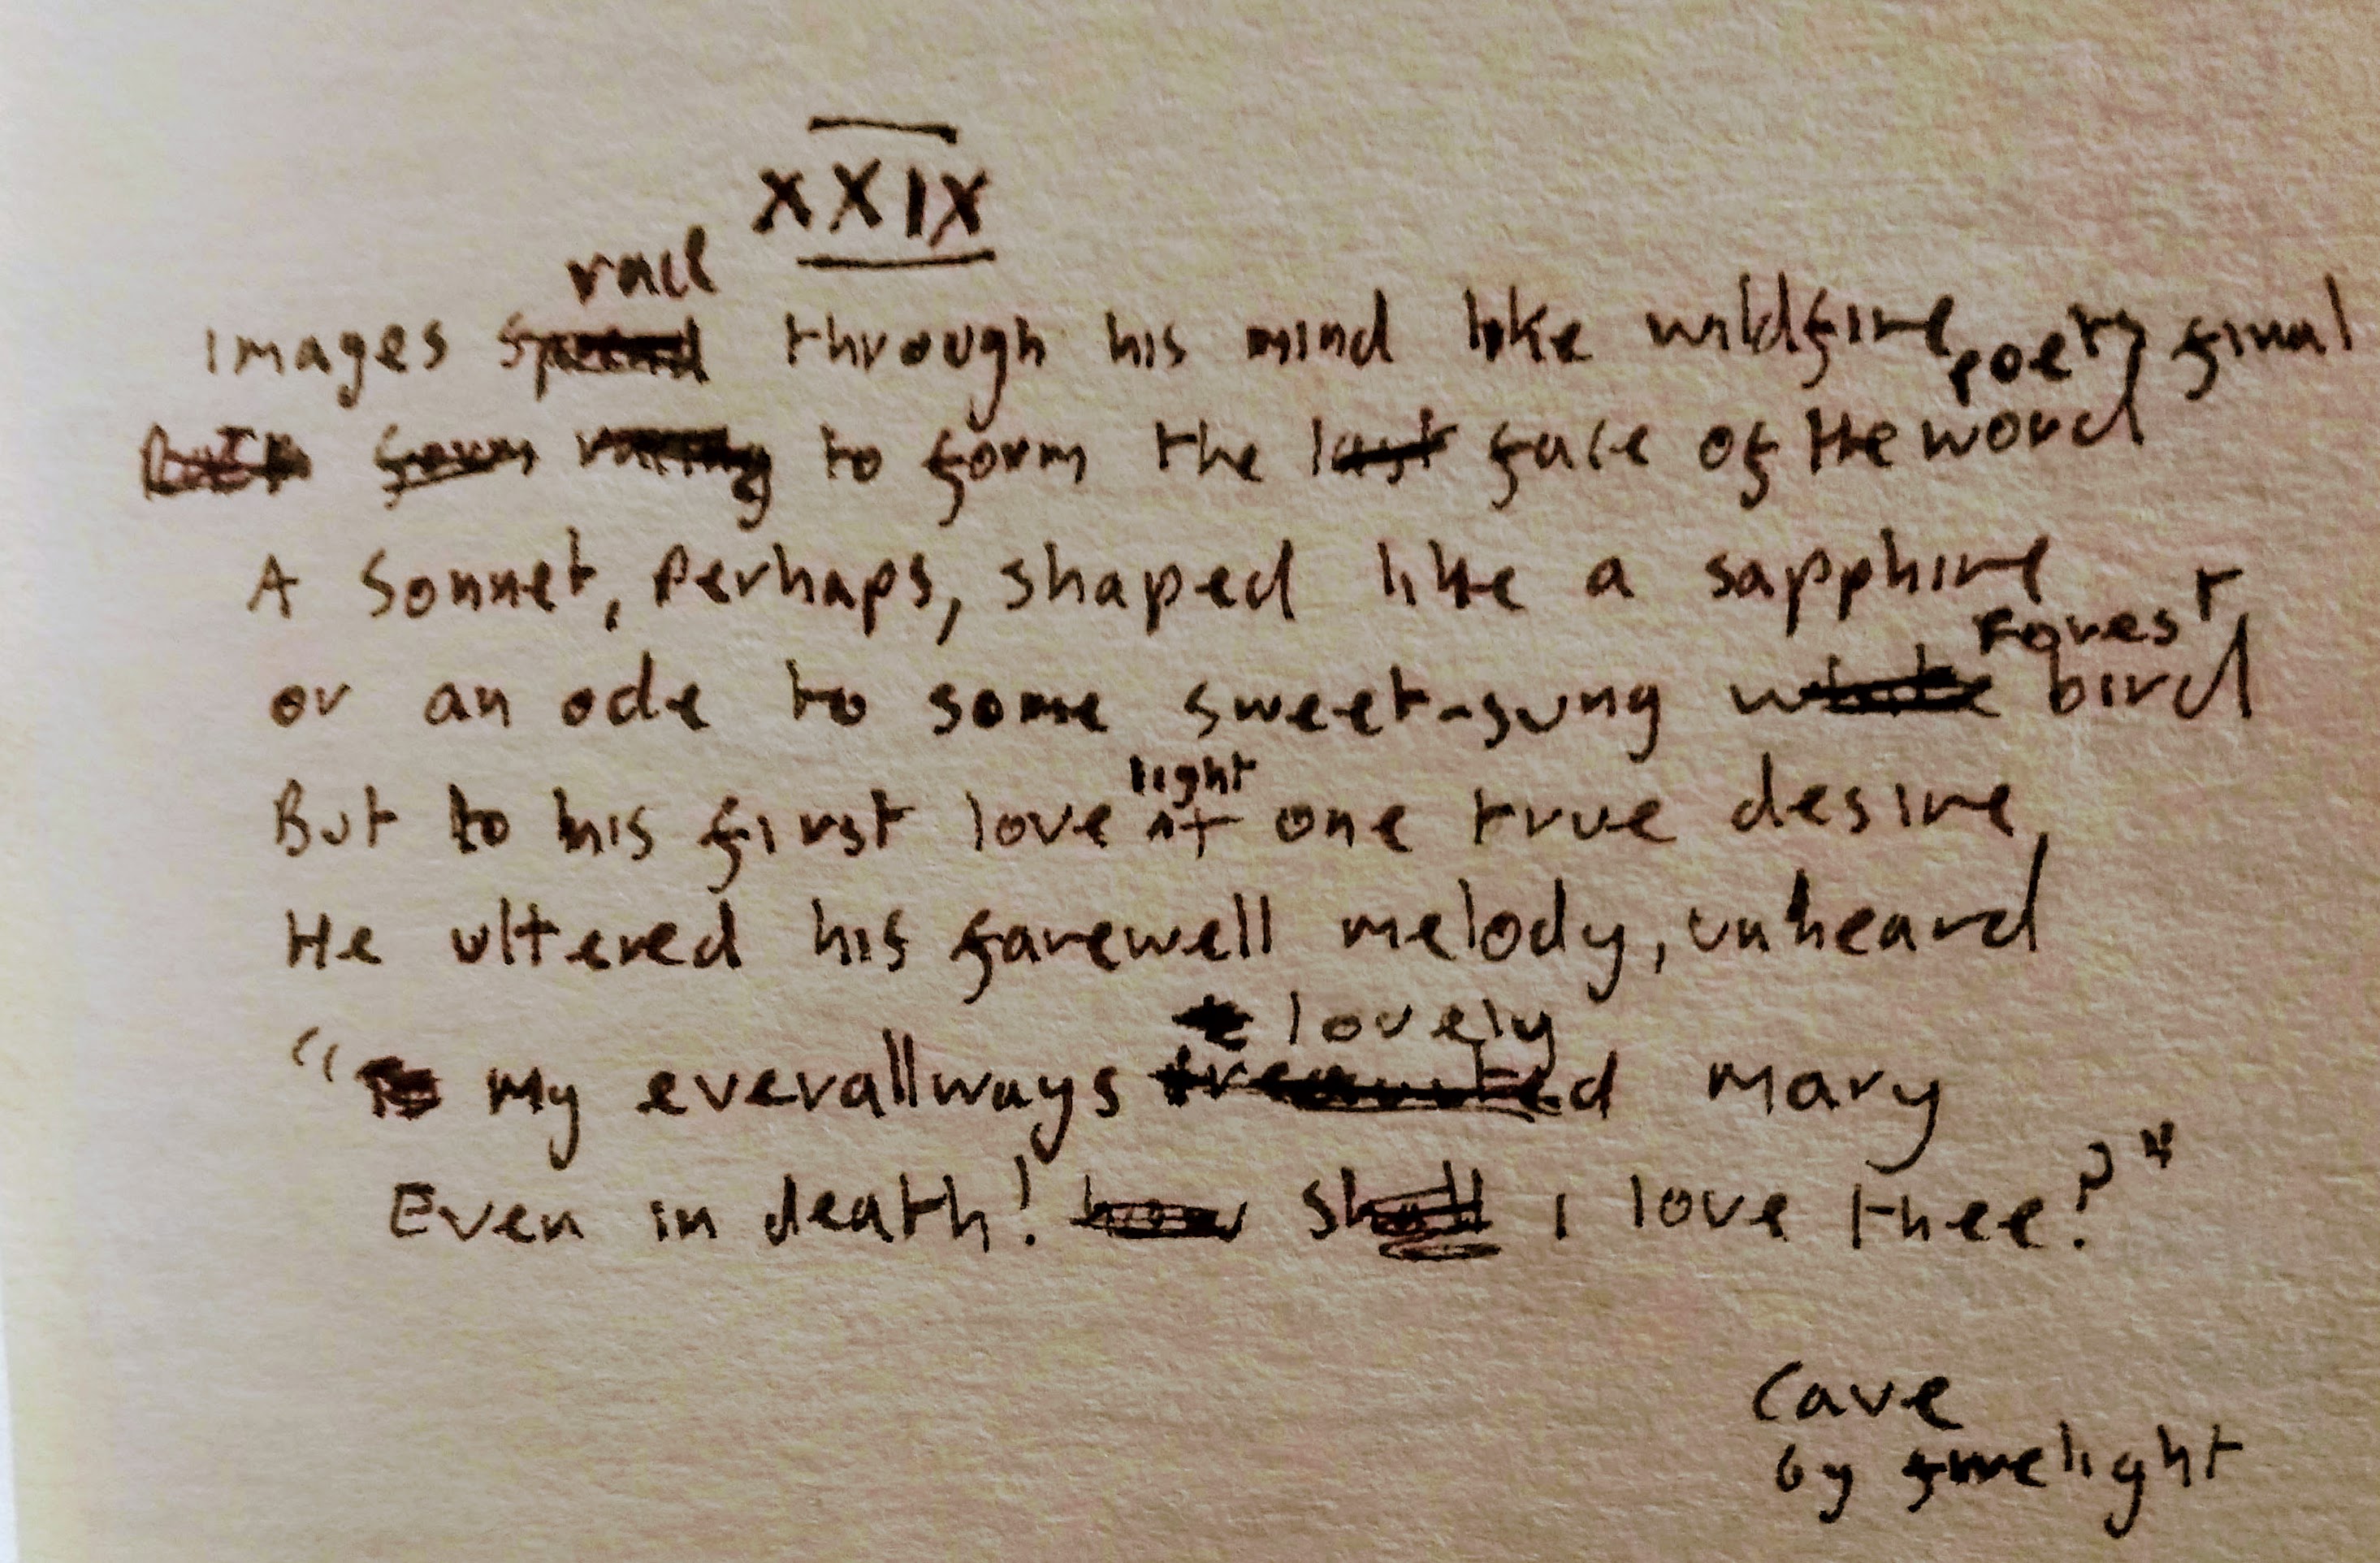 XXIX
race
Images through his mind like wildfire, poetry final
form racing to form the last face of the word
A Sonnet, Perhaps, shaped like a sapphire
Forest
or an ode to some sweet-sung white bird
light
But to his first love + one true desire,
He uttered his farewell melody, unheard
lovely
"My everallways Mary
Even in death! how shall I love thee?"
Cave
by firelight